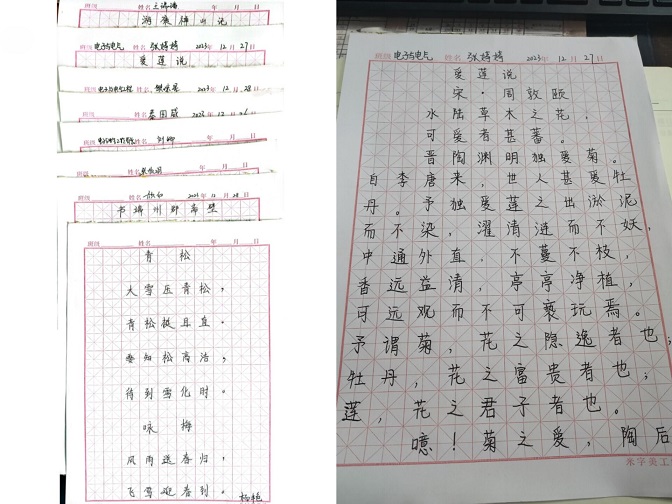 姓名 年 月 日
游褒禅山记
班级 电子与电气 姓名 张婷婷 2023年 12月 27日
爱莲说
班级 姓名 2023年 12月 28日
班级 姓名 秦国威 年 12月
班级 姓名 刘卿 年 月 日
班级 姓名 年 月 日
班级 姓名 年 12月 28日
书端州郡斋壁
班级 姓名 年 月 日
青 松
大雪压青松，
青松挺且直。
要知松高洁，
待到雪化时。
咏 梅
风雨送春归，
飞雪迎春到。
杨艳
班级 电子与电气 姓名 张婷婷 2023年 12月 27日
爱莲说
宋·周敦颐
水陆草木之花，
可爱者甚蕃。
晋陶渊明独爱菊。
自李唐来，世人甚爱牡
丹。予独爱莲之出淤泥
而不染，濯清涟而不妖，
中通外直，不蔓不枝，
香远益清，亭亭净植，
可远观而不可亵玩焉。
予谓菊，花之隐逸者也；
牡丹，花之富贵者也；
莲，花之君子者也。
噫！菊之爱，陶后
米字美工